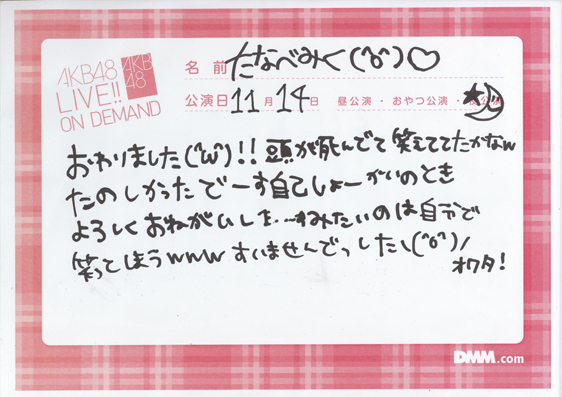 AKB48
LIVE!!
ON DEMAND
AKB
48
名前 たなべみく(^o^)♡
公演日 11月14日 昼公演・おやつ公演・夜公演
おわりました(^ω^)!! 頭が死んでて笑えてたかなw
たのしかったでーす自己しょーかいのとき
よろしくおねがいしま…ねみたいのは自分で
笑ってしまうwwwすいませんでっした\(^o^)/
オワタ!
DMM.com